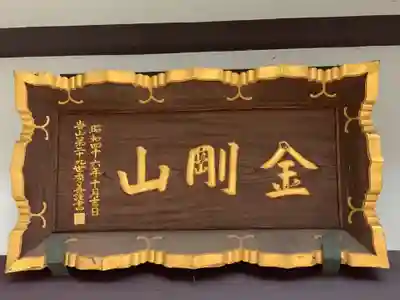 金剛山
昭和四十六年十月吉日
当山第二十九世